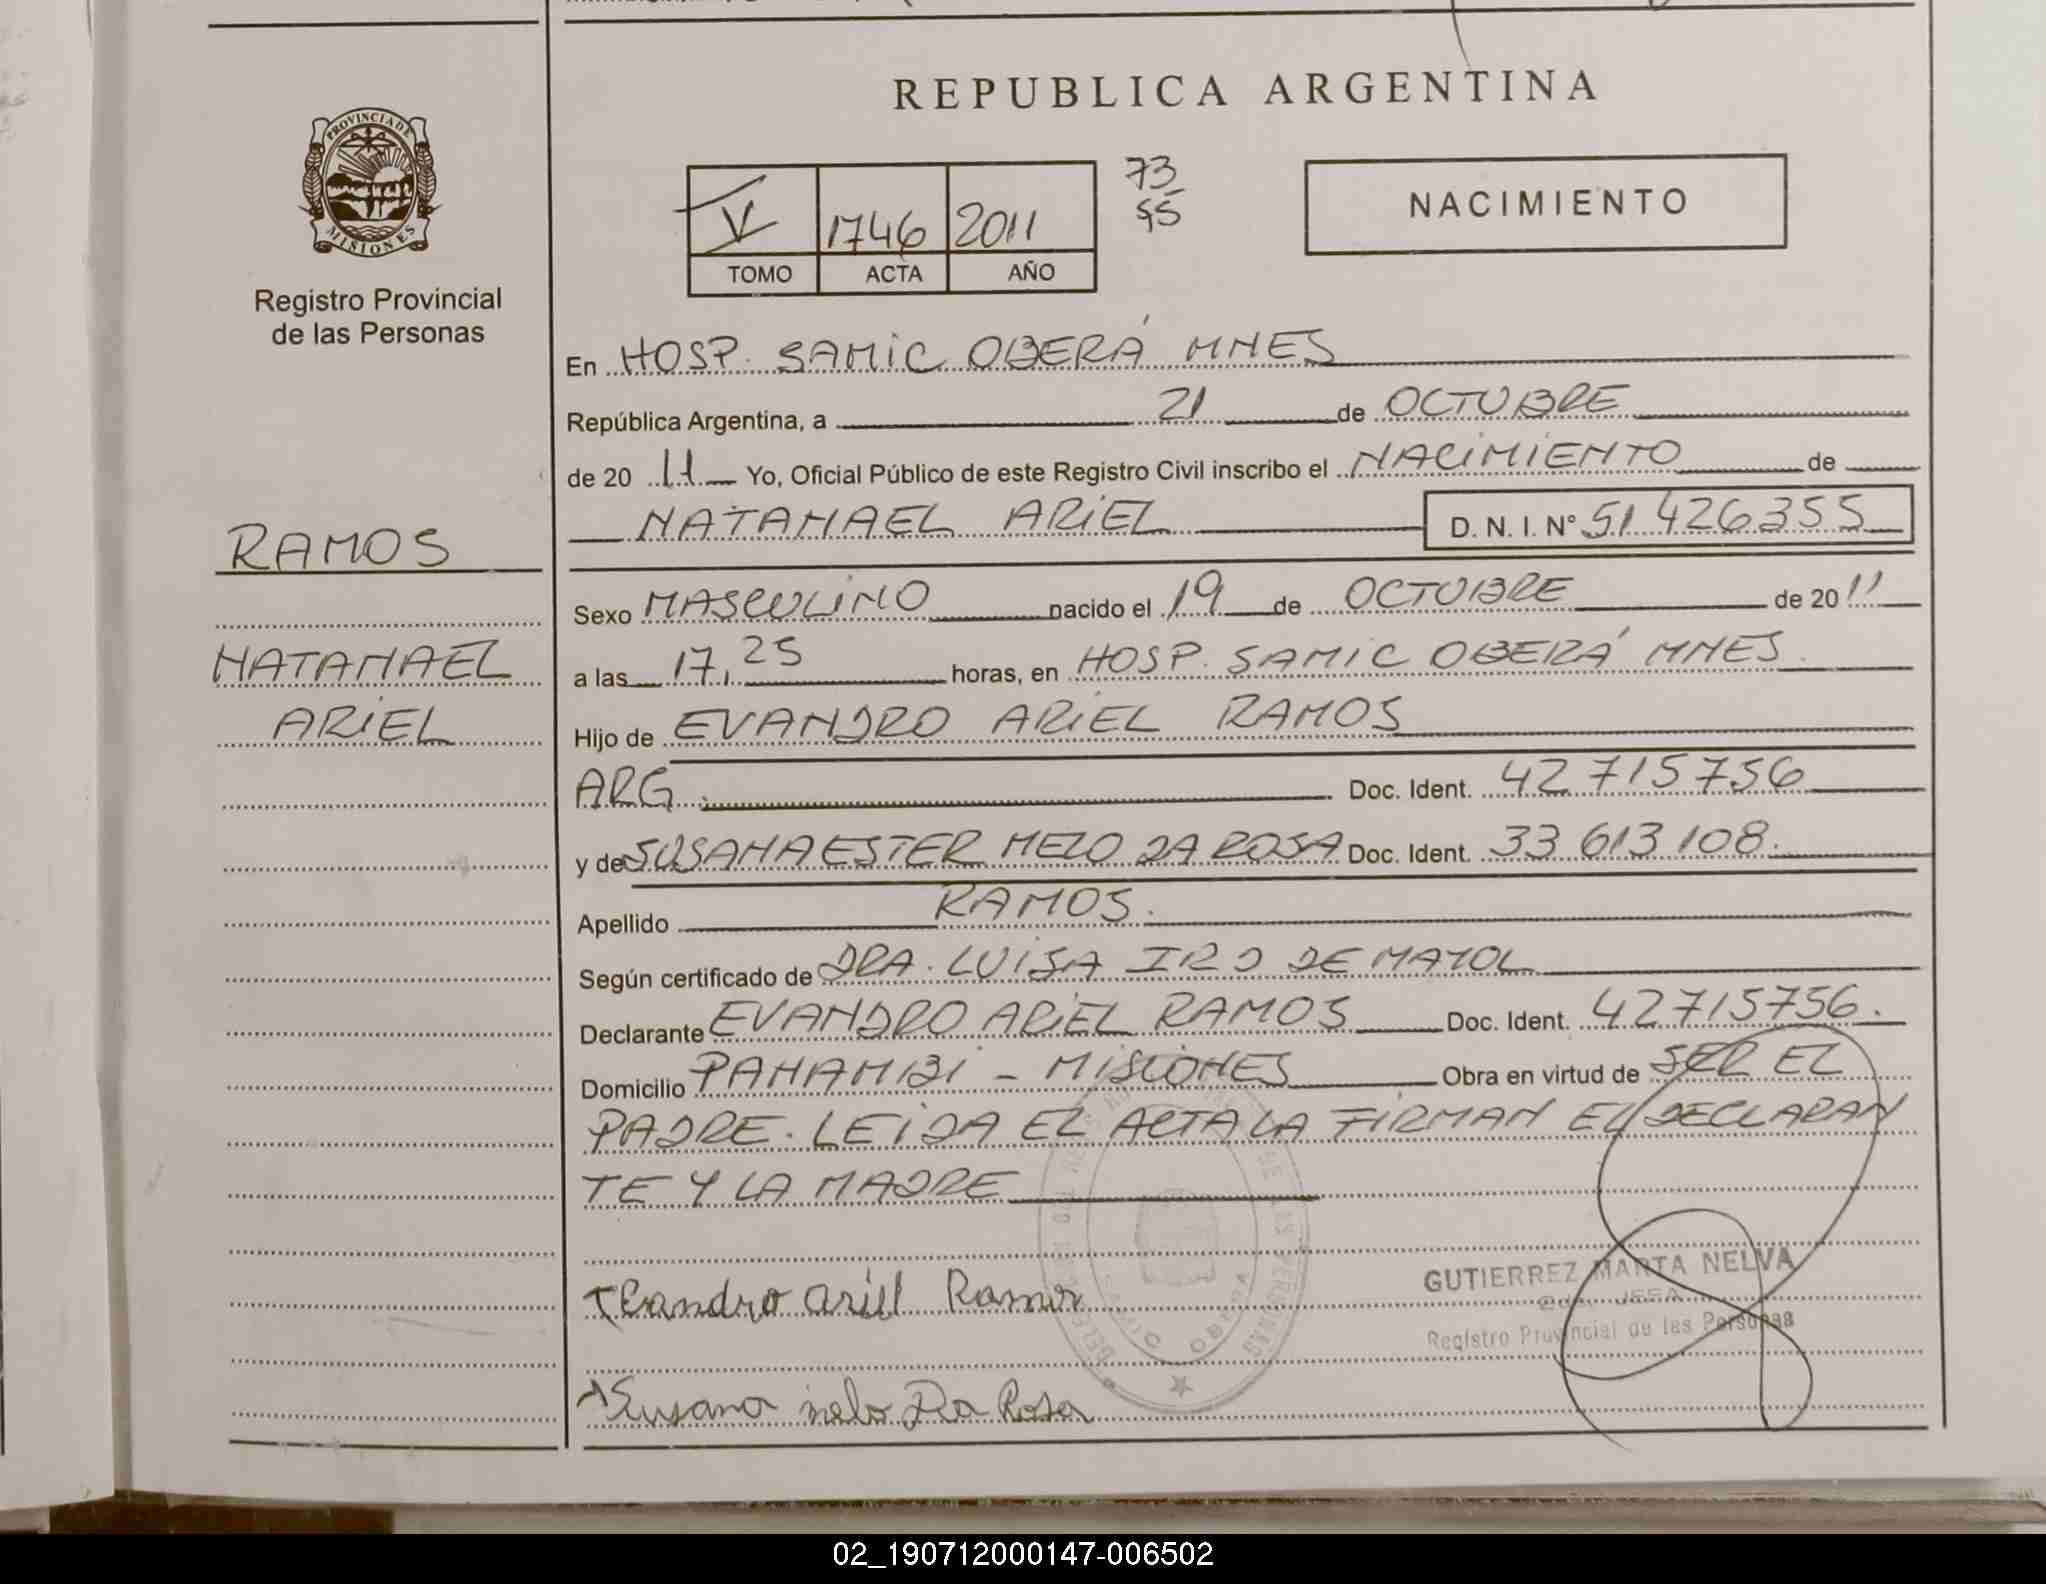 REPUBLICA ARGENTINA
PROVINCIA DE
MISIONES
Registro Provincial
de las Personas
V 1746 2011
TOMO ACTA AÑO
73
55
NACIMIENTO
En HOSP. SAMIC OBERÁ MNES
República Argentina, a 21 de OCTUBRE
de 20 11 Yo, Oficial Público de este Registro Civil inscribo el NACIMIENTO de
NATANAEL ARIEL D. N. I. N° 51 426355
RAMOS
NATANAEL
ARIEL
Sexo MASCULINO nacido el 19 de OCTUBRE de 20 11
a las 17,25 horas, en HOSP. SAMIC OBERÁ MNES
Hijo de EVANDRO ARIEL RAMOS
ARG. Doc. Ident. 42 715 756
y de SUSANA ESTER MELO DA ROSA Doc. Ident. 33 613 108.
Apellido RAMOS.
Según certificado de DRA. LUISA DE MAYOL
Declarante EVANDRO ARIEL RAMOS Doc. Ident. 42715756.
Domicilio PANAMBI - MISIONES Obra en virtud de SER EL
PADRE. LEIDA EL ACTA LA FIRMAN EL DECLARAN
TE Y LA MADRE
GUTIERREZ MARTA NELVA
Registro Provincial de las Personas
Ariel Ramos
Susana melo Da Rosa
02_190712000147-006502